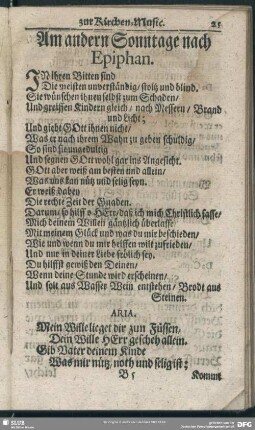 zur Kirchen-Music. 25
Am andern Sonntage nach
Epiphan.
IN ihren Bitten sind
Die meisten unverständig/ stoltz und blind.
Sie wünschen ihnen selbst zum Schaden/
Und greiffen Kindern gleich/ nach Messern/ Brand
und Licht;
Und giebt GOtt ihnen nicht/
Was er nach ihrem Wahn zu geben schuldig/
So sind sie ungedultig
Und segnen GOtt wohl gar ins Angesicht.
GOtt aber weiß am besten und allein/
Was uns kan nütz und selig seyn.
Er weiß dabey
Die rechte Zeit der Gnaden.
Darum/ so hilff o HErr/ daß ich mich Christlich fasse/
Mich deinem Willen gäntzlich überlasse/
Mit meinem Glück und was du mir bescheiden/
Wie und wenn du mir helffen wilt zufrieden/
Und nur in deiner Liebe frölich sey.
Du hilffst gewiß den Deinen/
Wenn deine Stunde wird erscheinen/
Und solt aus Wasser Wein entstehen/ Brodt aus
Steinen.
ARIA.
Mein Wille lieget dir zun Füssen,
Dein Wille HErr gescheh allein.
Gib Vater deinem Kinde
Was mir nütz, noth und selig ist;
B 5 Kommt
SLUB
DFG